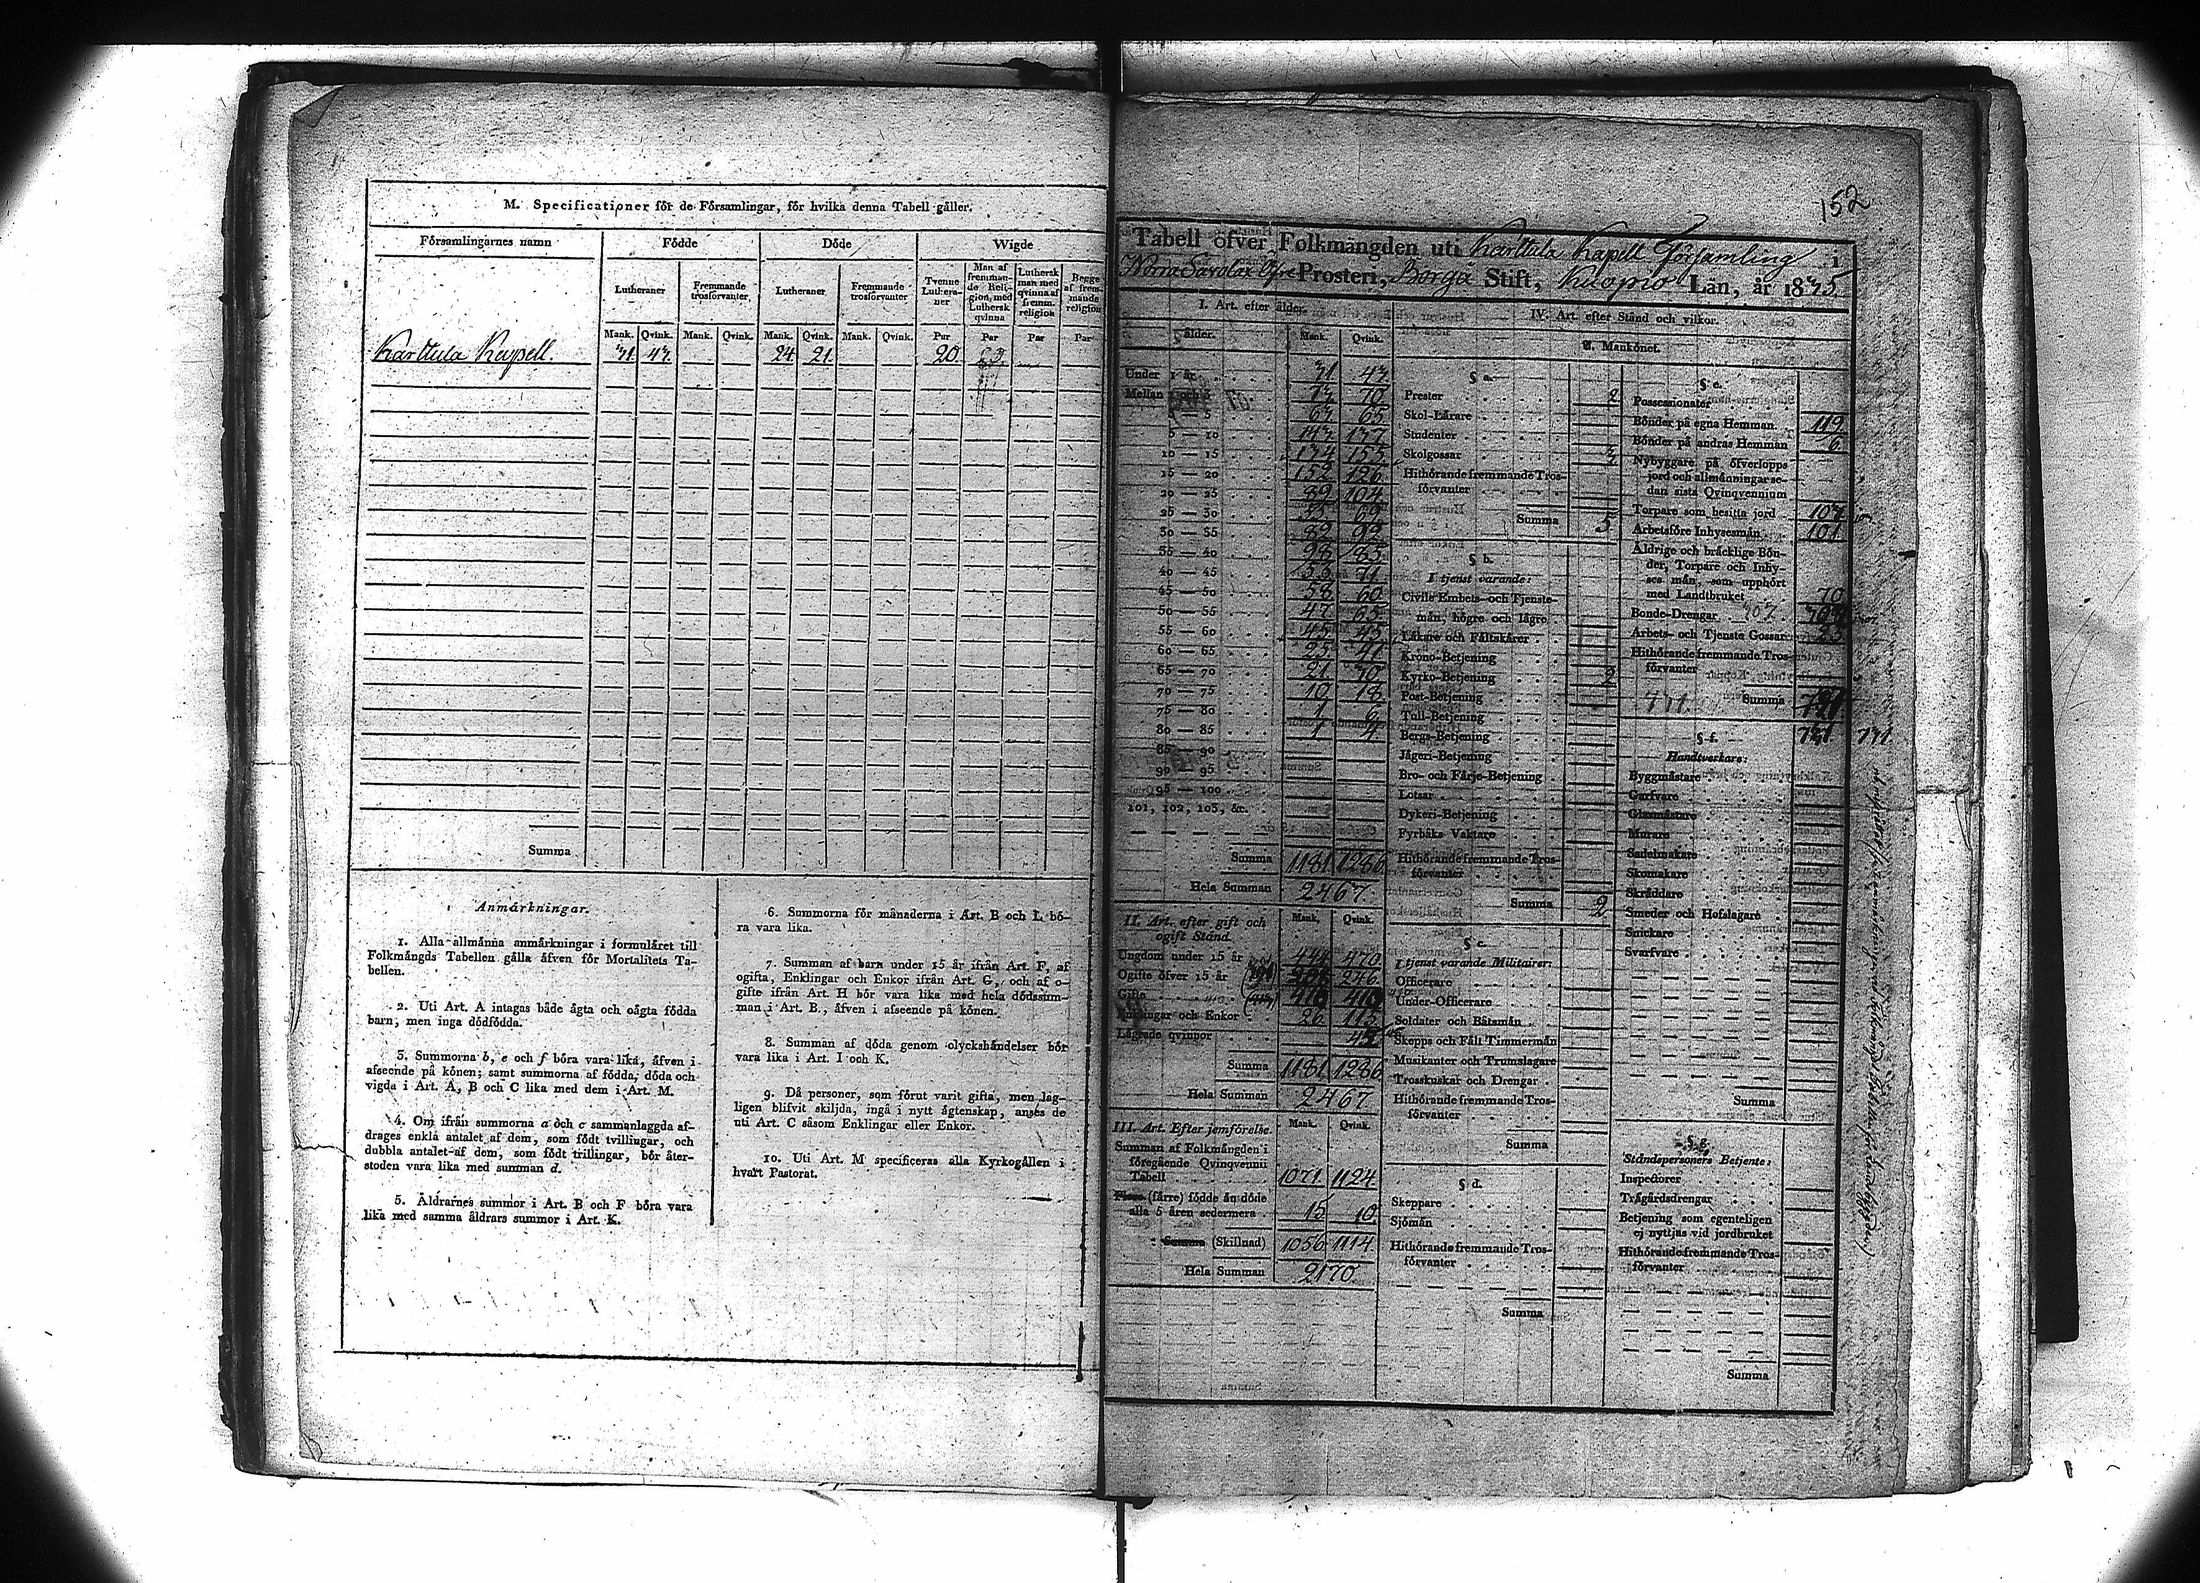 M. Specificationer för de Församlingar, för hvilka denna Tabell gäller.
Församlingarnes namn
Födde
Döde
Wigde
Lutheraner
Fremmande trosförvanter
Lutheraner
Fremmande trosförvanter
Tvenne Lutheraner
Man af fremmande Religion, med Luthersk qvinna
Luthersk man med qvinna af fremm. religion
Begge af fremmande religion
Mank. Qvink. Mank. Qvink. Mank. Qvink. Mank. Qvink. Par Par Par Par
Karttula Kapell. 24 21 20
Summa
Anmärkningar.
1. Alla allmänna anmärkningar i formuläret till
Folkmängds Tabellen gälla äfven för Mortalitets Ta-
bellen.
2. Uti Art. A intagas både ägta och oägta födda
barn, men inga dödfödda.
3. Summorna b, e och f böra vara lika, äfven i
afseende på könen; samt summorna af födda, döda och
vigda i Art. A, B och C lika med dem i Art. M.
4. Om ifrån summorna a och c sammanlaggda af-
drages enkla antalet af dem, som födt tvillingar, och
dubbla antalet af dem, som födt trillingar, bör åter-
stoden vara lika med summan d.
5. Åldrarnes summor i Art. B och F böra vara
lika med samma åldrars summor i Art. K.
6. Summorna för månaderna i Art. B och L bö-
ra vara lika.
7. Summan af barn under 15 år ifrån Art. F, af
ogifta, Enklingar och Enkor ifrån Art. G, och af o-
gifte ifrån Art. H bör vara lika med hela dödssum-
man i Art. B., äfven i afseende på könen.
8. Summan af döda genom olyckshändelser bör
vara lika i Art. I och K.
9. Då personer, som förut varit gifta, men lag-
ligen blifvit skiljda, ingå i nytt ägtenskap, anses de
uti Art. C såsom Enklingar eller Enkor.
10. Uti Art. M specificeras alla Kyrkogällen i
hvart Pastorat.
152
Tabell öfver Folkmängden uti Karttula Kapell Församling i
Norra Savolax Öfre Prosteri, Borgå Stift, Kuopio Län, år 18
I. Art. efter ålder.
Ålder. Mank. Qvink.
Under 1 år
Mellan 70
5 65
5 — 10 137
10 — 15 155
15 — 20 152 126
20 — 25 89 104
25 — 30
30 — 35 82 92
35 — 40 98 85
40 — 45 53 71
45 — 50 58 60
50 — 55 47 65
55 — 60 45
60 — 65 25 41
65 — 70 21
70 — 75 10 18
75 — 80 1 6
80 — 85 1 4
85 — 90
90 — 95
95 — 100
101, 102, 103, &c.
Summa 1181 1286
Hela Summan 2467.
II. Art. efter gift och
ogift Stånd. Mank. Qvink.
Ungdom under 15 år 470
Ogifte öfver 15 år 246
Gifte 410 410
Enklingar och Enkor 26 115
Lägrade qvinnor
Summa 1181 1286
Hela Summan 2467
III. Art. Efter jemförelse. Mank. Qvink.
Summan af Folkmängden i
föregående Qvinqvennii
Tabell 1071 1124
Flere (färre) födde än döde
alla 5 åren sedermera 15 10
Summa (Skillnad) 1056 1114
Hela Summan 2170
IV. Art. efter Stånd och vilkor.
Mankönet.
§ a.
Prester 2
Skol-Lärare
Studenter
Skolgossar 3
Hithörande fremmande Tros-
förvanter
Summa 5
§ b.
I tjenst varande:
Civile Embets- och Tjenste-
män, högre och lägre
Läkare och Fältskärer
Krono-Betjening
Kyrko-Betjening 2
Post-Betjening
Tull-Betjening
Bergs-Betjening
Jägeri-Betjening
Bro- och Färje-Betjening
Lotsar
Dykeri-Betjening
Fyrbåks Vaktare
Hithörande fremmande Tros-
förvanter
Summa 2
§ c.
I tjenst varande Militairer:
Officerare
Under-Officerare
Soldater och Båtsmän
Skepps och Fält Timmermän
Musikanter och Trumslagare
Trosskuskar och Drengar
Hithörande fremmande Tros-
förvanter
Summa
§ d.
Skeppare
Sjömän
Hithörande fremmande Tros-
förvanter
Summa
§ e.
Possessionater
Bönder på egna Hemman 119
Bönder på andras Hemman 6
Nybyggare på öfverlopps
jord och allmänningar se-
dan sista Qvinqvennium
Torpare som besitta jord 107
Arbetsföre Inhysesmän 101
Åldrige och bräcklige Bön-
der, Torpare och Inhy-
ses män, som upphört
med Landtbruket 70
Bonde-Drengar
Arbets- och Tjenste Gossar
Hithörande fremmande Tros-
förvanter
Summa
§ f.
Handtverkare:
Byggmästare
Garfvare
Glasmästare
Murare
Sadelmakare
Skomakare
Skräddare
Smeder och Hofslagare
Snickare
Svarfvare
Summa
§ g.
Ståndspersoners Betjente:
Inspector
Trägårdsdrengar
Betjening som egenteligen
ej nyttjas vid jordbruket
Hithörande fremmande Tros-
förvanter
Summa